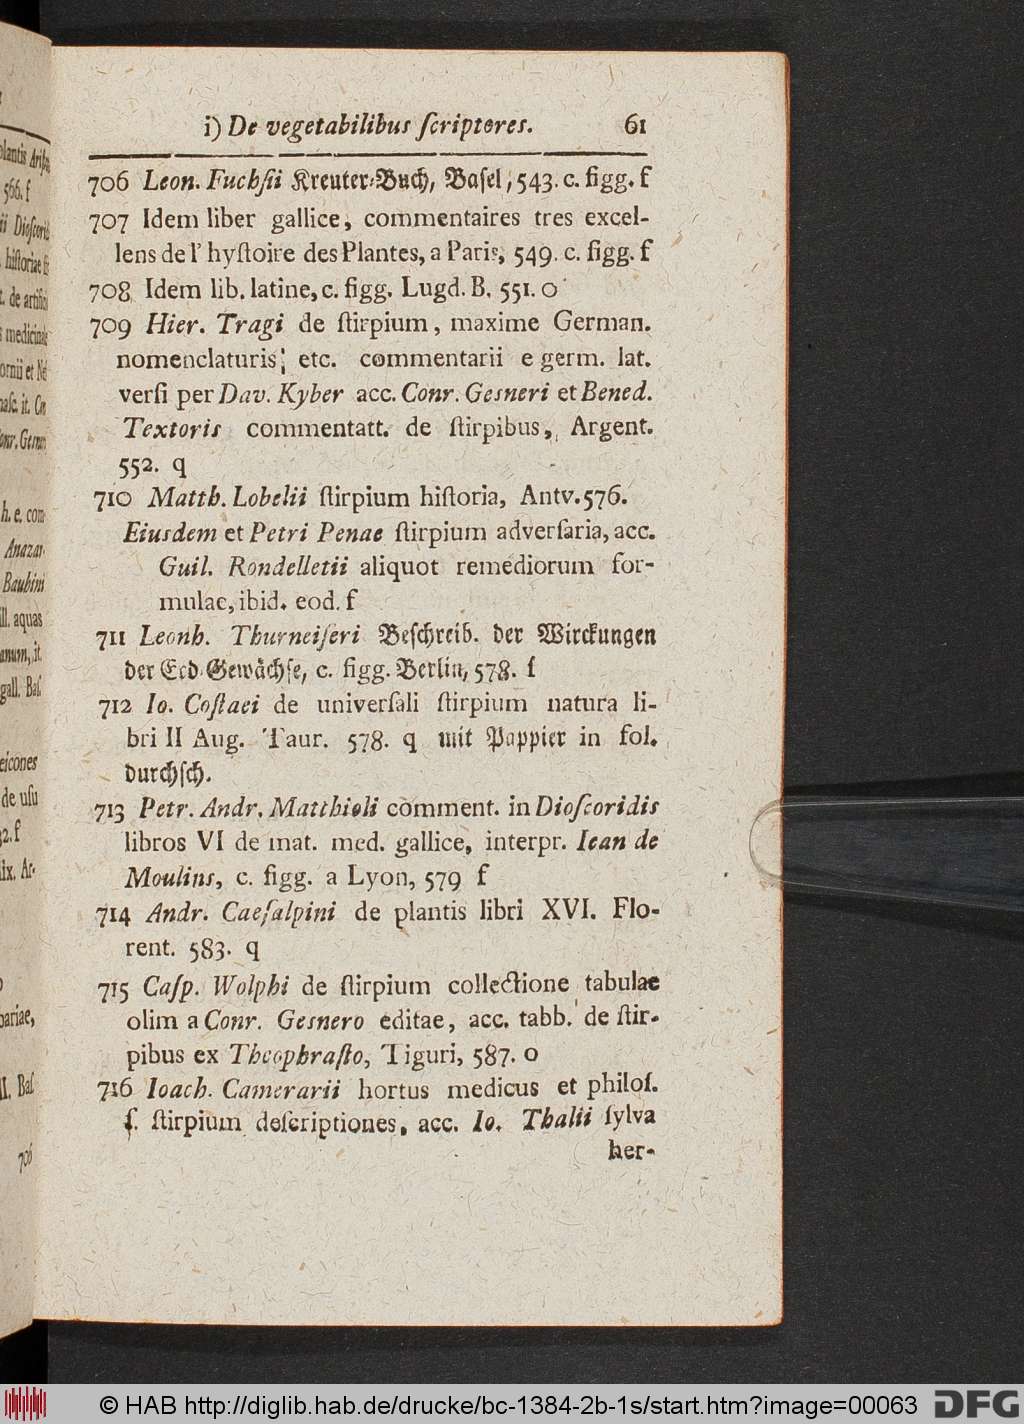 i) De vegetabilibus ſcriptores. 61
706 Leon. Fuchſii Kreuter-Buch, Baſel, 543. c. figg. f
707 Idem liber gallice, commentaires tres excel-
lens de l' hyſtoire des Plantes, a Paris, 549. c. figg. f
708 Idem lib. latine, c. figg. Lugd. B. 551. o
709 Hier. Tragi de ſtirpium, maxime German.
nomenclaturis, etc. commentarii e germ. lat.
verſi per Dav. Kyber acc. Conr. Gesneri et Bened.
Textoris commentatt. de ſtirpibus, Argent.
552. q
710 Matth. Lobelii ſtirpium hiſtoria, Antv. 576.
Eiusdem et Petri Penae ſtirpium adverſaria, acc.
Guil. Rondelletii aliquot remediorum for-
mulae, ibid. eod. f
711 Leonh. Thurneiſeri Beſchreib. der Wirckungen
der Erd-Gewächſe, c. figg. Berlin, 578. f
712 Io. Coſtaei de univerſali ſtirpium natura li-
bri II Aug. Taur. 578. q mit Pappier in fol.
durchſch.
713 Petr. Andr. Matthioli comment. in Dioſcoridis
libros VI de mat. med. gallice, interpr. Iean de
Moulins, c. figg. a Lyon, 579 f
714 Andr. Caeſalpini de plantis libri XVI. Flo-
rent. 583. q
715 Caſp. Wolphi de ſtirpium collectione tabulae
olim a Conr. Gesnero editae, acc. tabb. de ſtir-
pibus ex Theophraſto, Tiguri, 587. o
716 Ioach. Camerarii hortus medicus et philoſ.
ſ. ſtirpium deſcriptiones, acc. Io. Thalii ſylva
her-
© HAB http://diglib.hab.de/drucke/bc-1384-2b-1s/start.htm?image=00063
DFG